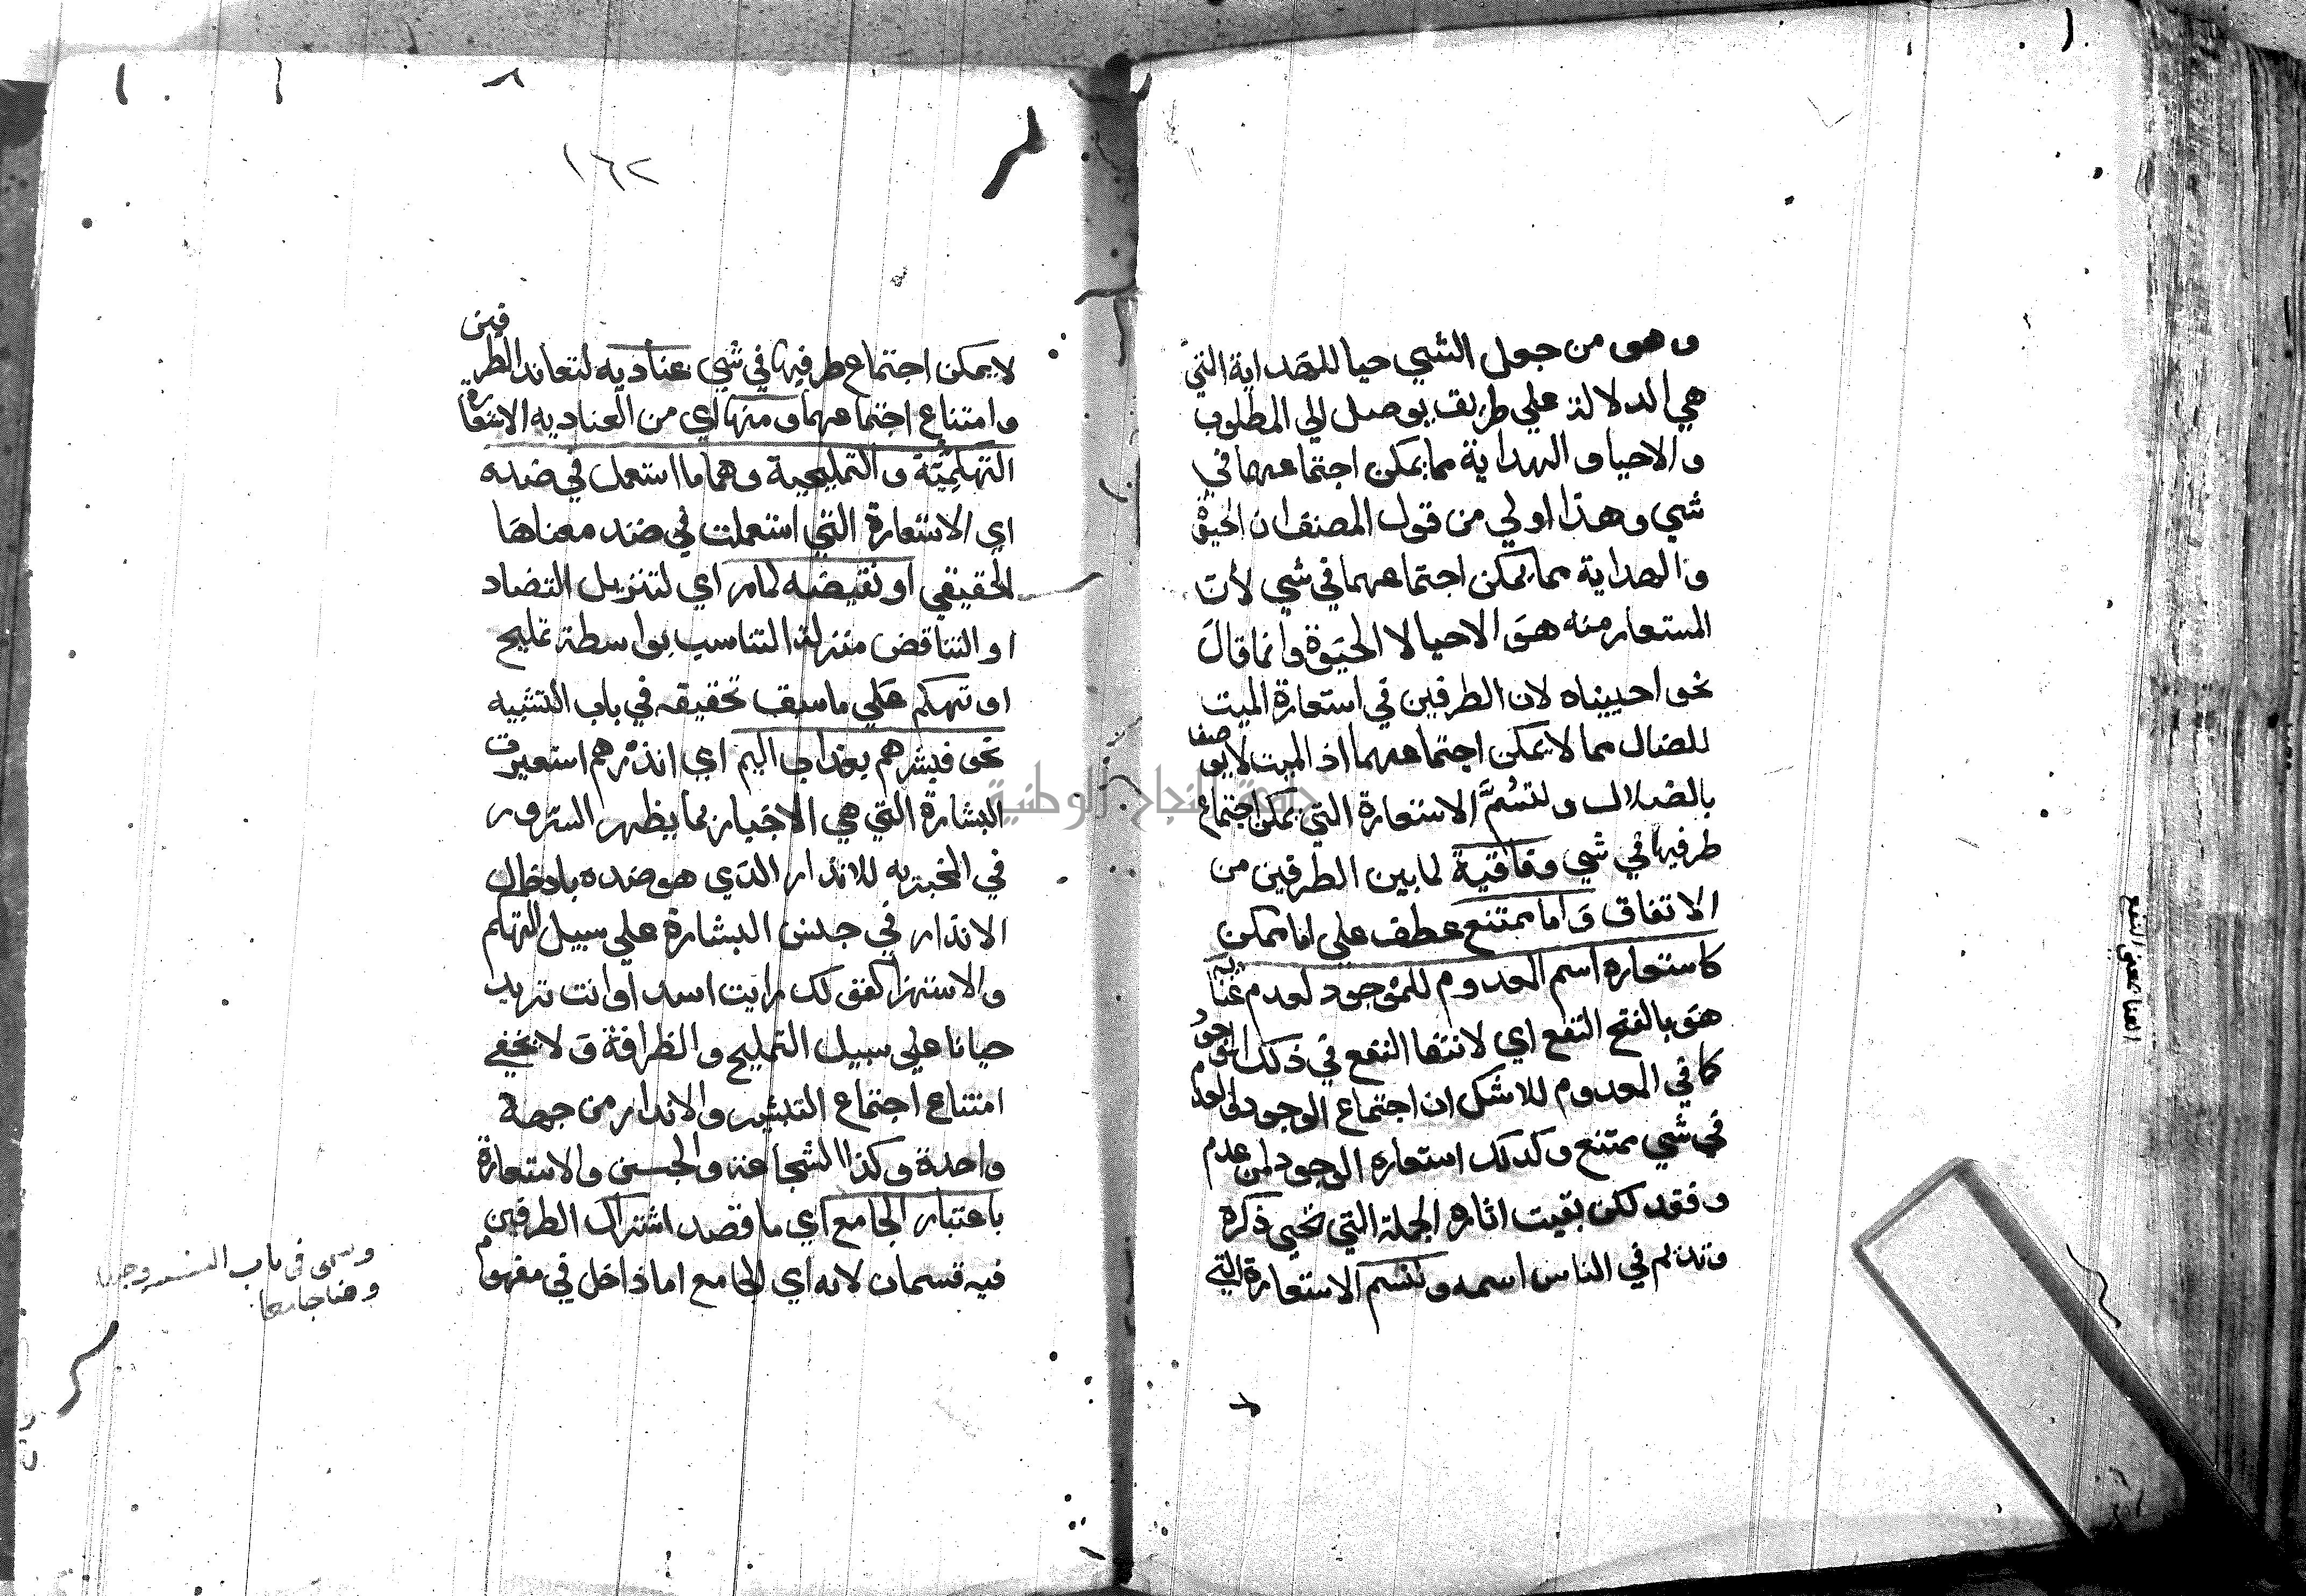 وهو من جعل الشي حيا للهداية التي
هي الدلالة علي طريق يوصل الي المطلوب
والاحيا والهداية مما يمكن اجتماعهما في
شي وهذا اولي من قول المصنف ان الحيوة
والهداية مما يمكن اجتماعهما في شي لان
المستعار منه هو الاحيا لا الحيوة وانما قال
نحو احييناه لان الطرفين في استعارة الميت
للضال مما لا يمكن اجتماعهما اذ الميت لا يوصف
بالضلال ولتسم الاستعارة التي يمكن اجتماع
طرفيها في شي وفاقية لما بين الطرفين من
الاتفاق واما ممتنع عطف علي اما ممكن
كاستعاره اسم المعدوم للموجود لعدم غنايه
هو بالفتح النفع اي لانتفا النفع في ذلك الموجود
كما في المعدوم للاشك ان اجتماع الوجود والعدم
في شي ممتنع وكذلك استعاره الوجود لمن عدم
وفقد لكن بقيت اثاره الجملة التي تحيي ذكره
وتديم في الناس اسمه ولتسم الاستعارة التي
الغنا بمعني النفع
١٦٢
لا يمكن اجتماع طرفيها في شي عناديه لتعاند الطرفين
وامتناع اجتماعهما ومنها اي من العناديه الاستعارة
التهكمية والتمليحية وهما ما استعمل في ضده
اي الاستعارة التي استعملت في ضد معناها
الحقيقي او نقيضه لما مر اي لتنزيل التضاد
او التناقض منزلة التناسب بواسطة تمليح
او تهكم علي ما سبق تحقيقه في باب التشبيه
نحو فبشرهم بعذاب اليم اي انذرهم استعيرت
البشارة التي هي الاخبار بما يظهر السرور
في المخبر به للانذار الذي هو ضده بادخال
الانذار في جنس البشارة علي سبيل التهكم
والاستهزا كقولك رايت اسدا وانت تريد
جبانا علي سبيل التمليح والظرافة ولا يخفي
امتناع اجتماع التبشير والانذار من جهة
واحدة وكذا الشجاعة والجبن والاستعارة
باعتبار الجامع اي ما قصد اشتراك الطرفين
فيه قسمان لانه اي الجامع اما داخل في مفهوم
وسمى في باب التشبيه وجها
وهنا جامعا
جامعة النجاح الوطنية